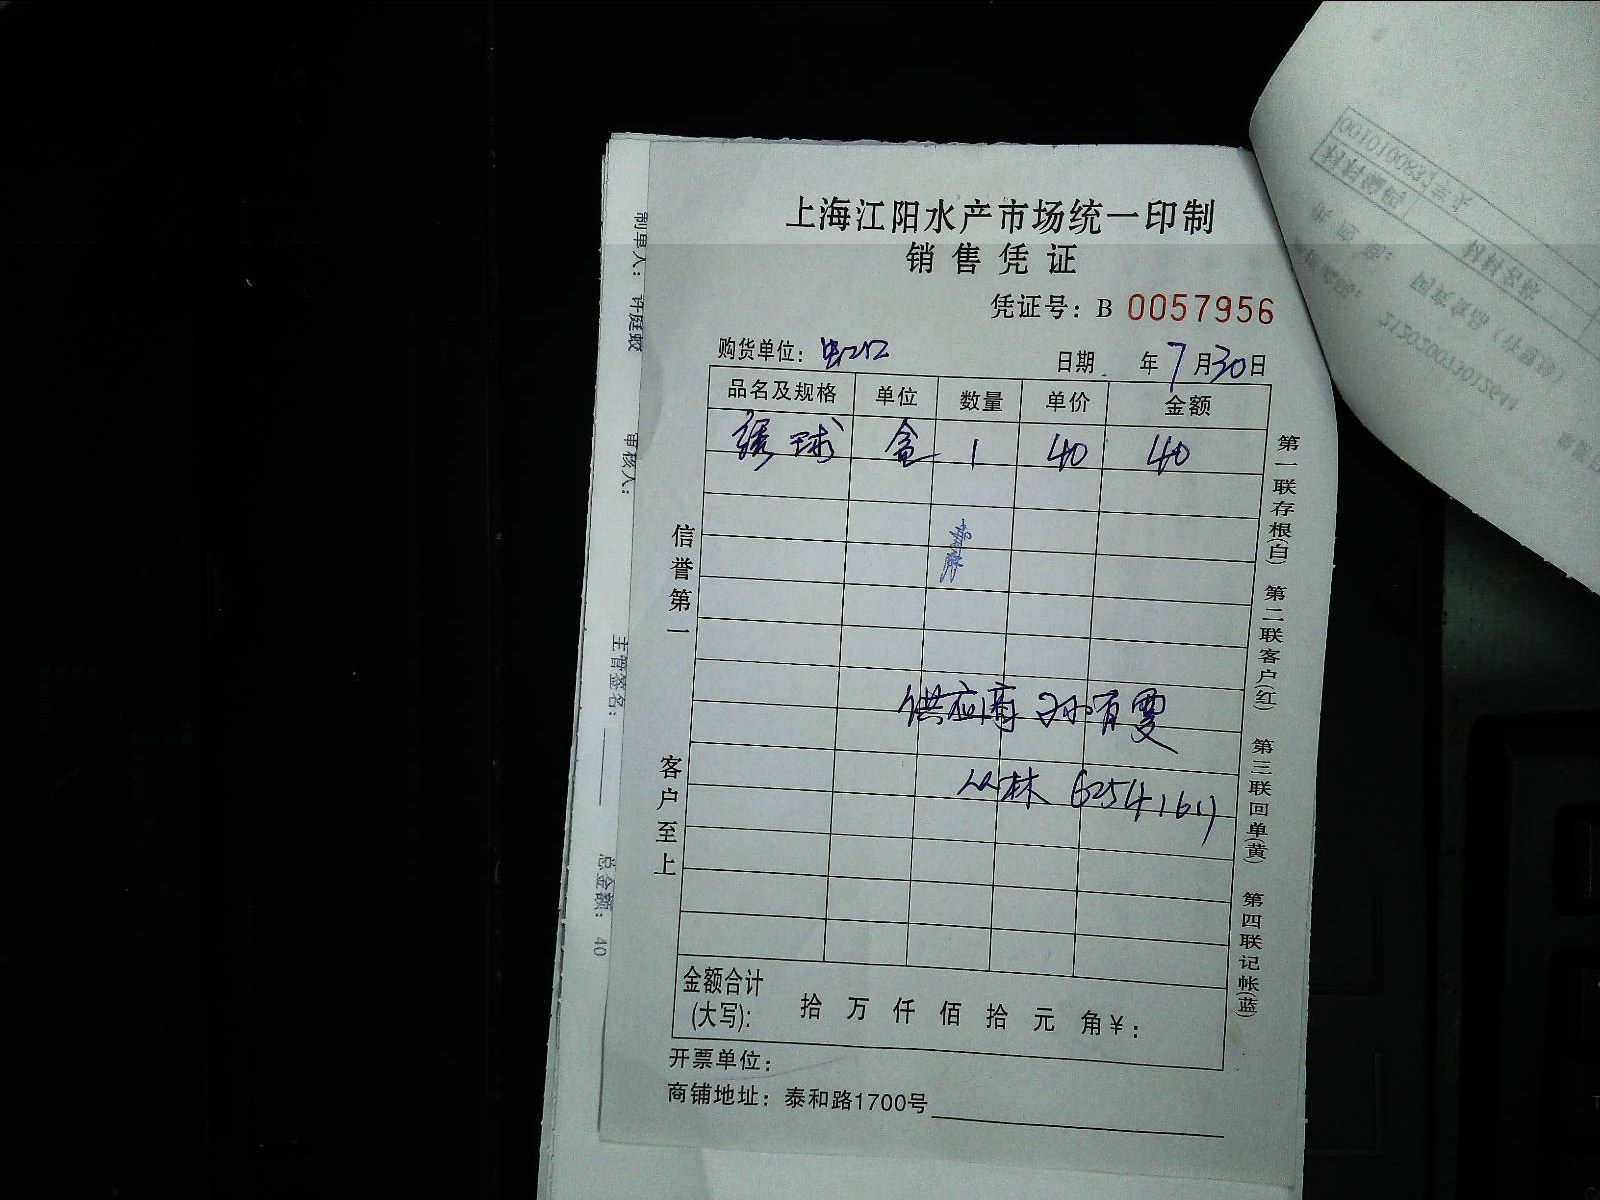 上海江阳水产市场统一印制
销售凭证
凭证号：B 0057956
购货单位：虹口 日期 年 7 月 30 日
品名及规格 单位 数量 单价 金额
绣球 盒 1 40 40
供应商 孙育雯
丛林 62541611
金额合计
(大写)： 拾 万 仟 佰 拾 元 角 ￥：
开票单位：
商铺地址：泰和路1700号
信誉第一
客户至上
第一联存根(白) 第二联客户(红) 第三联回单(黄) 第四联记帐(蓝)
制单人： 许庭蛟
审核人：
主管签名：
总金额： 40